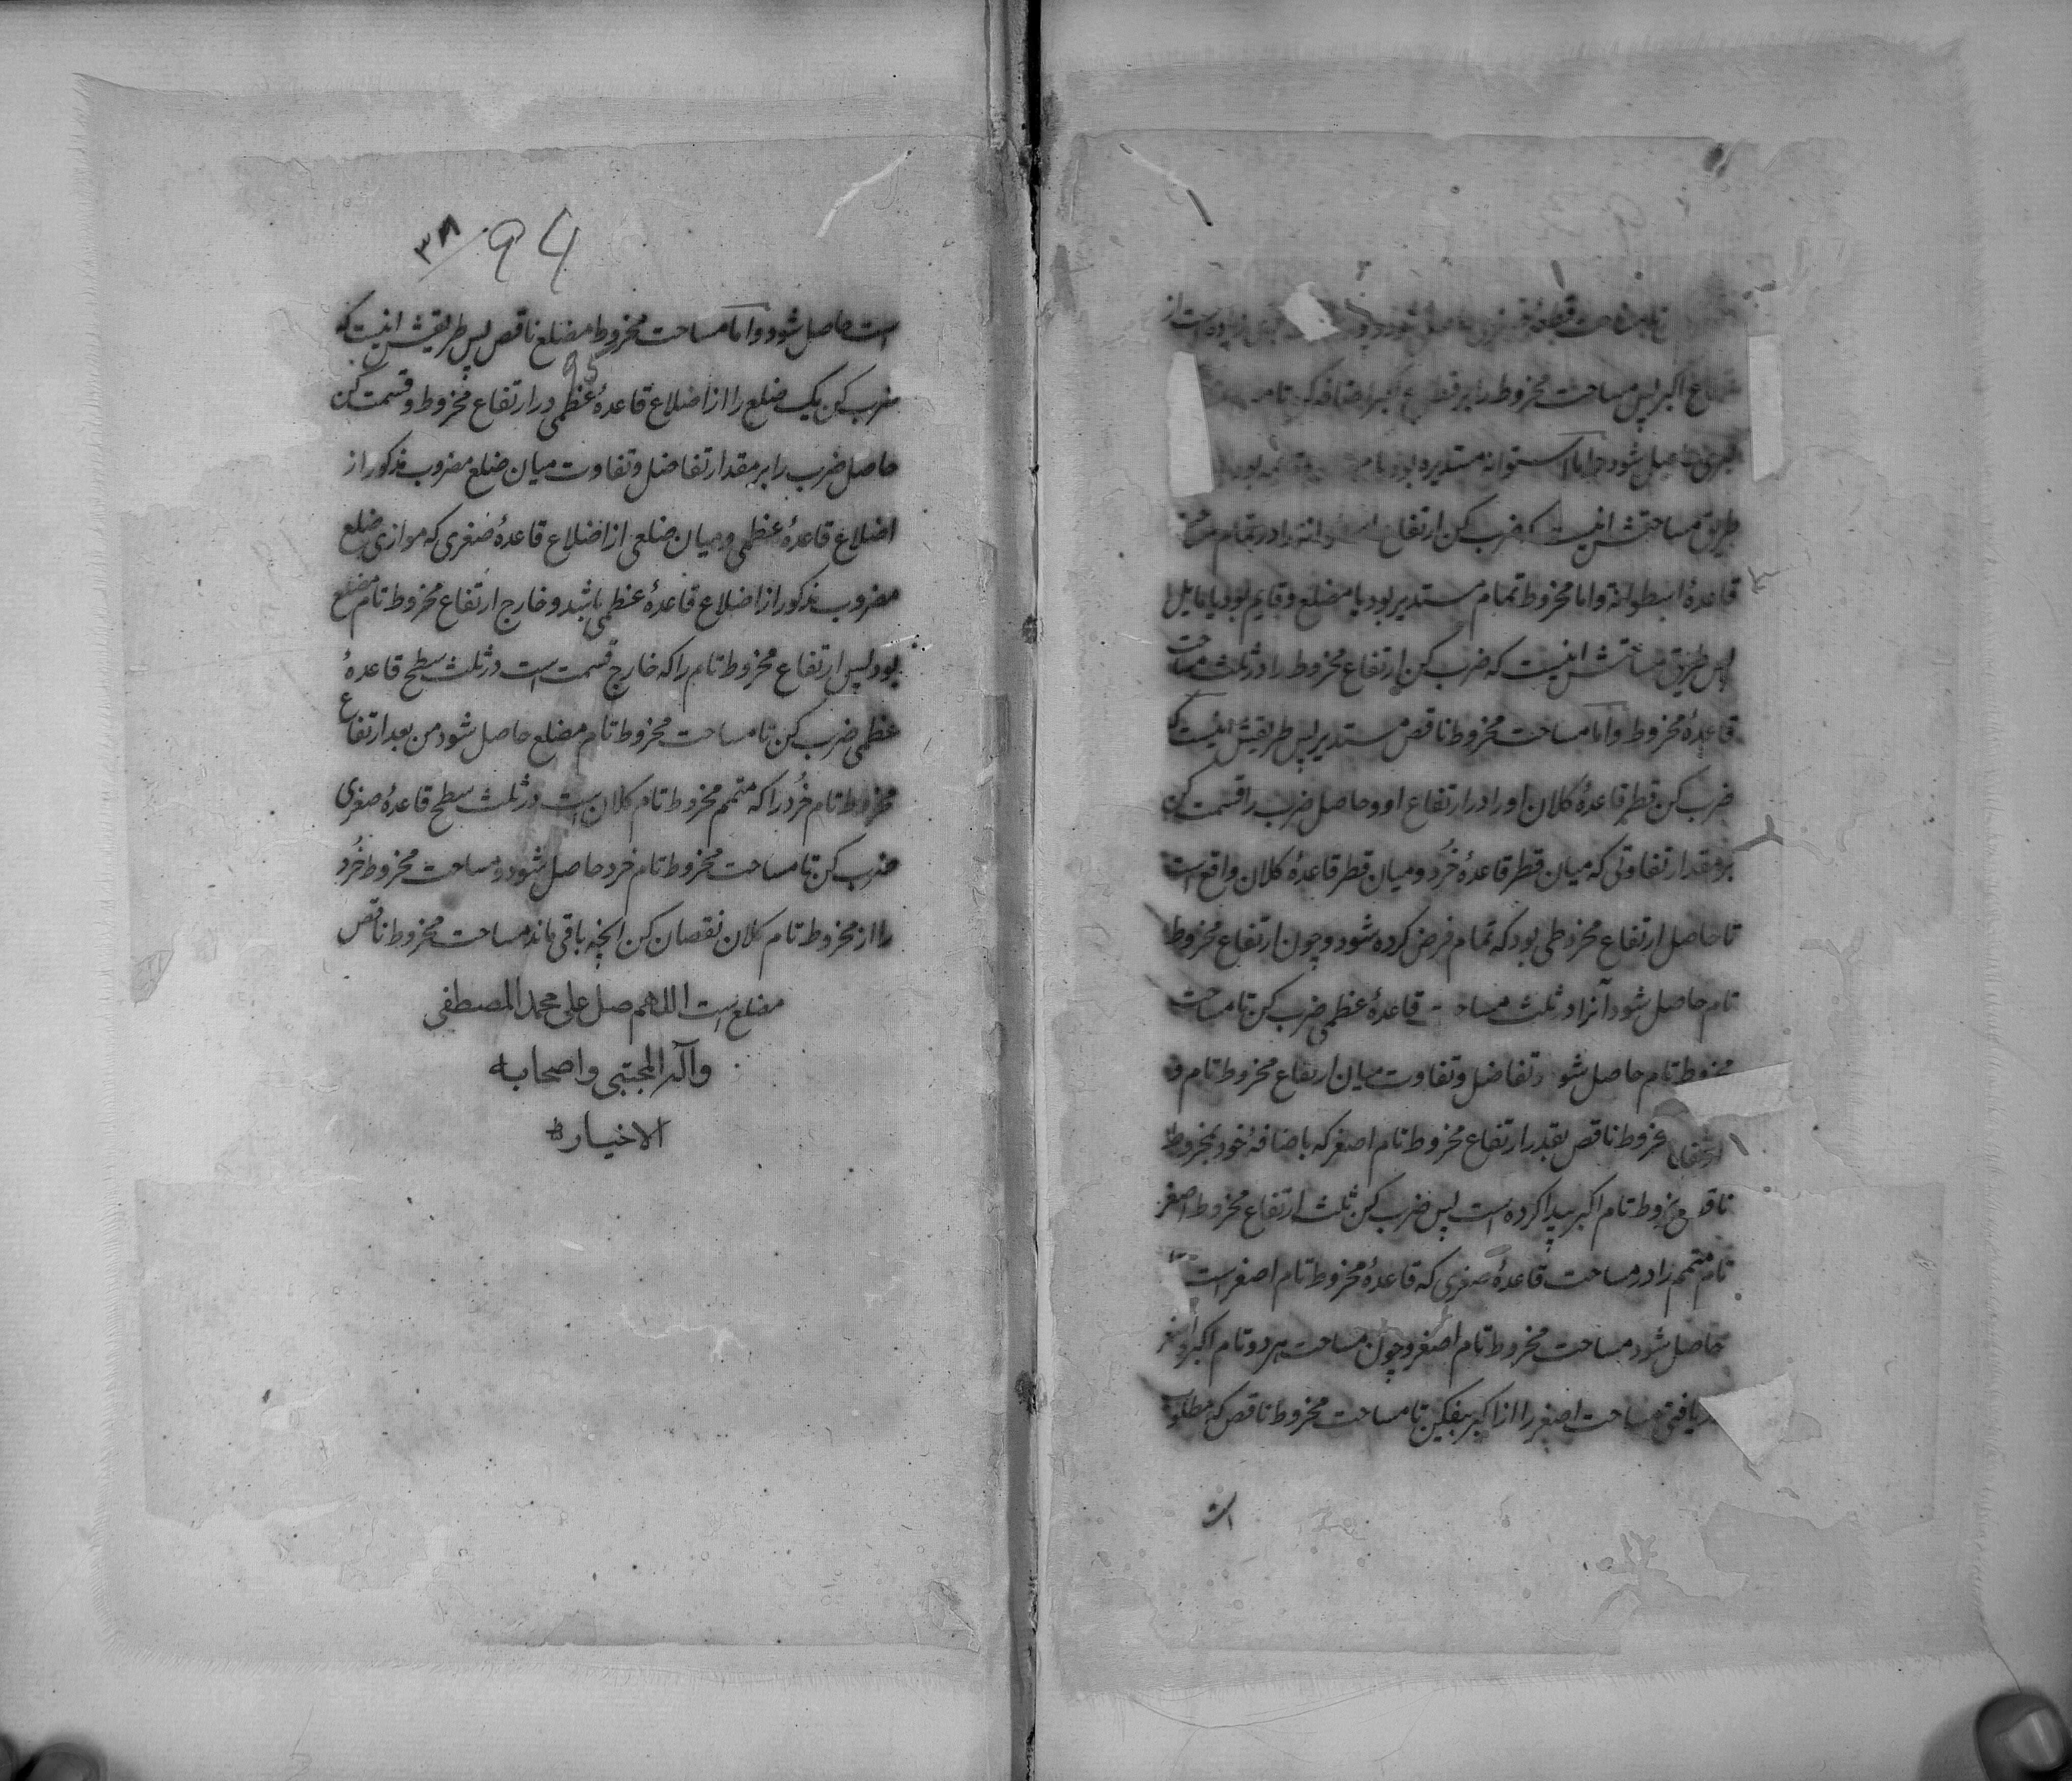 تا مساحت قطعهٔ صغری حاصل شود و
اکبر پس مساحت مخروط را بر قطاع اکبر اضافه کن تا
کبری حاصل شود و اما استوانه مستدیره بود یا
طریق مساحتش اینست که ضرب کن ارتفاع استوانه را در تمام
قاعدهٔ اسطوانه و اما مخروط تمام مستدیر بود یا مضلع و قایم بود یا مایل
پس طریق مساحتش اینست که ضرب کن ارتفاع مخروط را در ثلث مساحت
قاعدهٔ مخروط و اما مساحت مخروط ناقص مستدیر پس طریقش اینست که
ضرب کن قطر قاعدهٔ کلان او را در ارتفاع او و حاصل ضرب را قسمت کن
بر مقدار تفاوتی که میان قطر قاعدهٔ خُرد و میان قطر قاعدهٔ کلان واقع است
تا حاصل ارتفاع مخروطی بود که تمام فرض کرده شود و چون ارتفاع مخروط
تام حاصل شود آنرا در ثلث مساحت قاعدهٔ عظمی ضرب کن تا مساحت
مخروط تام حاصل شود و تفاضل و تفاوت میان ارتفاع مخروط تام و
ارتفاع مخروط ناقص بقدر ارتفاع مخروط تام اصغر که باضافهٔ خود بمخروط
ناقص مخروط تام اکبر پیدا کرده است پس ضرب کن ثلث ارتفاع مخروط اصغر
تام متمم را در مساحت قاعدهٔ صغری که قاعدهٔ مخروط تام اصغر است
حاصل شود مساحت مخروط تام اصغر و چون مساحت هر دو تام اکبر و اصغر
دریافتی مساحت اصغر را از اکبر بیفکن تا مساحت مخروط ناقص که مطلوب
است
۳۸ / 94
است حاصل شود و اما مساحت مخروط مضلع ناقص پس طریقش اینست که
95
ضرب کن یک ضلع را از اضلاع قاعدهٔ عظمی در ارتفاع مخروط و قسمت کن
حاصل ضرب را بر مقدار تفاضل و تفاوت میان ضلع مضروب مذکور از
اضلاع قاعدهٔ عظمی و میان ضلعی از اضلاع قاعدهٔ صغری که موازی ضلع
مضروب مذکور از اضلاع قاعدهٔ عظمی باشد و خارج ارتفاع مخروط تام مضلع
بود پس ارتفاع مخروط تام را که خارج قسمت است در ثلث سطح قاعدهٔ
عظمی ضرب کن تا مساحت مخروط تام مضلع حاصل شود من بعد ارتفاع
مخروط تام خُرد را که متمم مخروط تام کلان است در ثلث سطح قاعدهٔ صغری
ضرب کن تا مساحت مخروط تام خرد حاصل شود و مساحت مخروط خُرد
را از مخروط تام کلان نقصان کن انچه باقی ماند مساحت مخروط ناقص
مضلع است اللهم صل علی محمد المصطفی
وآله المجتبی واصحابه
الاخیار